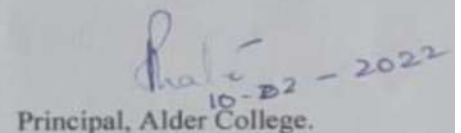 10-02-2022
Principal, Alder College.